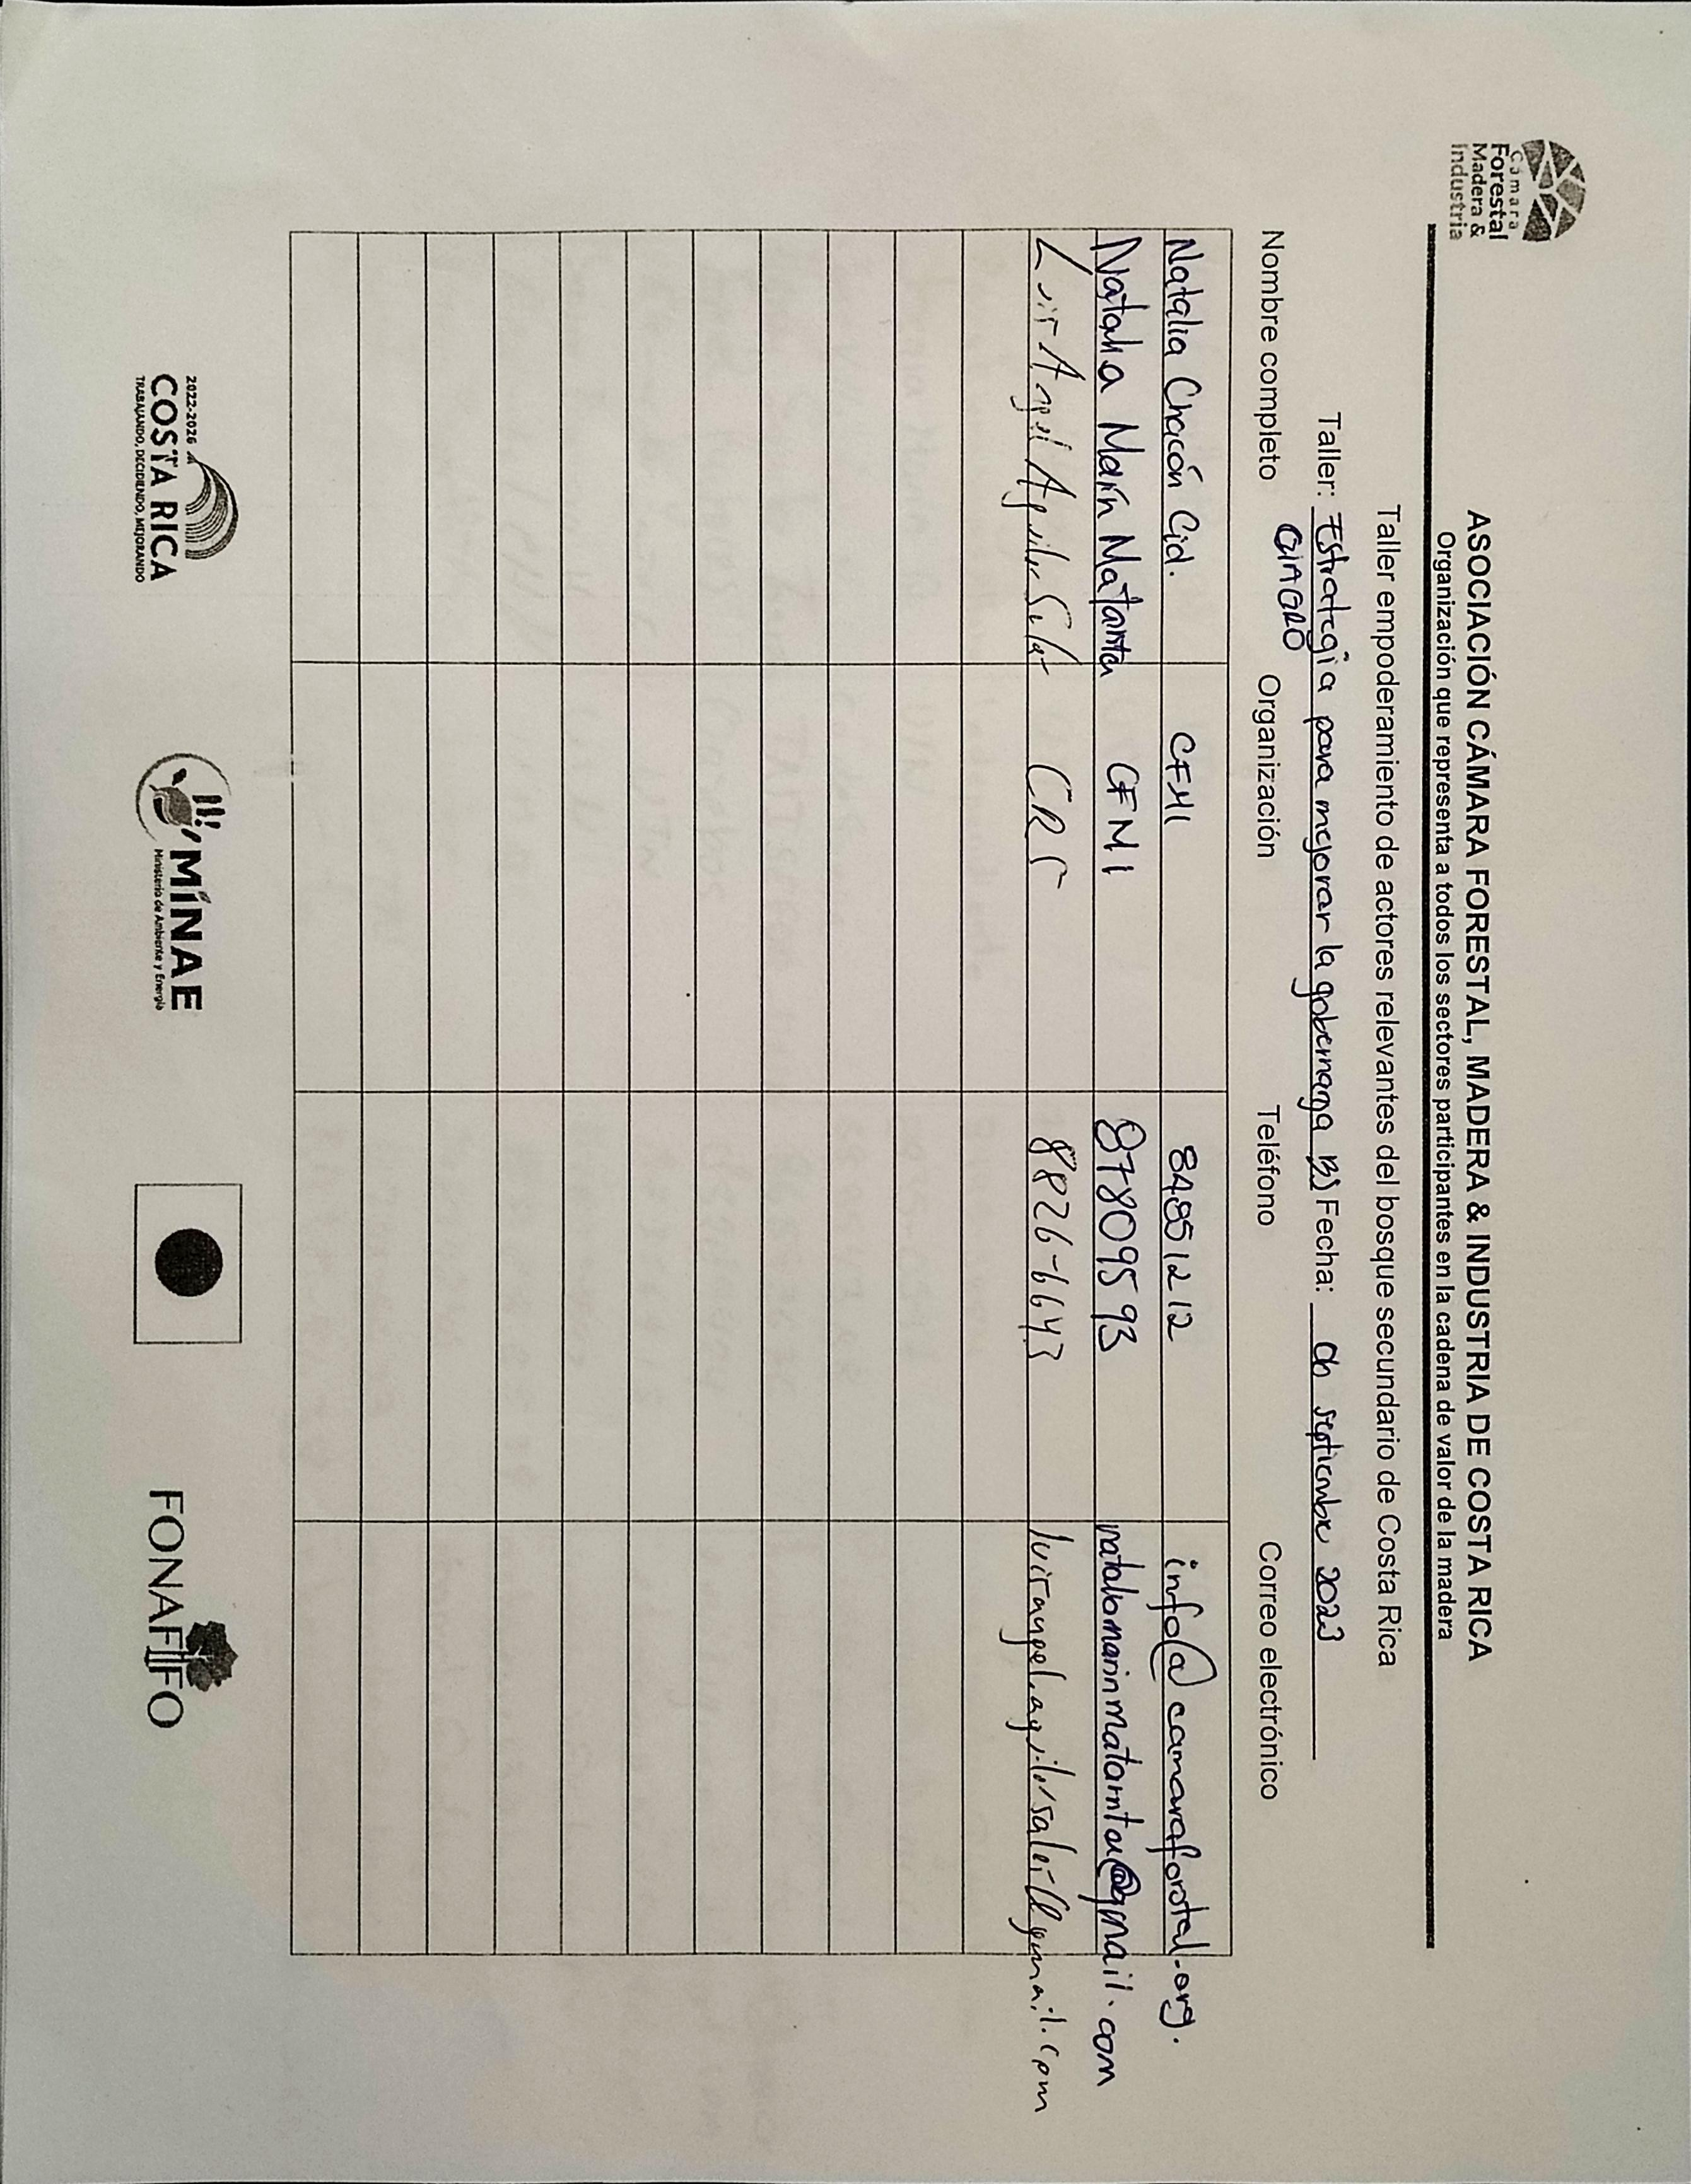 Cámara
Forestal
Madera &
Industria
ASOCIACIÓN CÁMARA FORESTAL, MADERA & INDUSTRIA DE COSTA RICA
Organización que representa a todos los sectores participantes en la cadena de valor de la madera
Taller empoderamiento de actores relevantes del bosque secundario de Costa Rica
Taller: Estrategia para mejorar la gobernanza BS Fecha: 06 septiembre 2023
CIAGRO
Nombre completo Organización Teléfono Correo electrónico
Natalia Chacón Cid. CFMI 84851212 info@camaraforestal.org.
Natalia Marín Matarrita CFMI 87809593 nataliamarinmatarrita@gmail.com
Luis Angel Aguilar Salas 8826-6643 luisangel.aguilarsalas@gmail.com
2022-2026
COSTA RICA
TRABAJANDO, DECIDIENDO, MEJORANDO
MINAE
Ministerio de Ambiente y Energía
FONAFIFO